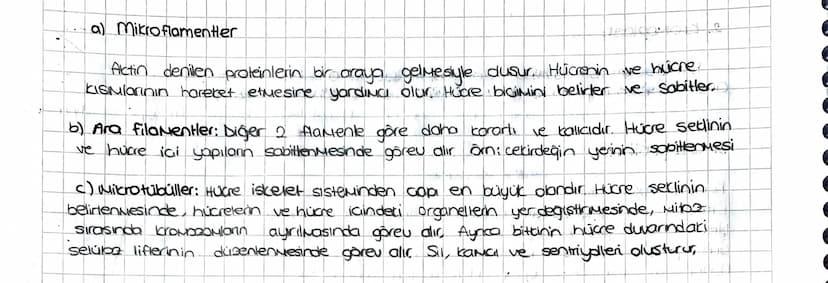 a) Mikroflamentler
Actin denilen proteinlerin bir araya gelmesiyle olusur. Hücrenin ve hücre
kısımlarının hareket etmesine yardımcı olur. Hücre biçimini belirler ve sabitler.
b) Ara filamentler: Diğer 2 flamente göre daha kararlı ve kalıcıdır. Hücre seklinin
ve hücre içi yapıların sabitlenmesinde görev alır örn: çekirdeğin yerinin sabitlenmesi
c) Mikrotübüller: Hücre iskelet sisteminden çapı en büyük olandır. Hücre seklinin
belirlenmesinde, hücrelerin ve hücre içindeki organellerin yer değistirmesinde, mitoz
sırasında kromozomların ayrılmasında görev alır, Ayrıca bitkinin hücre duvarındaki
selüloz liflerinin düzenlenmesinde görev alır. Sil, kamçı ve sentriyolleri olusturur,